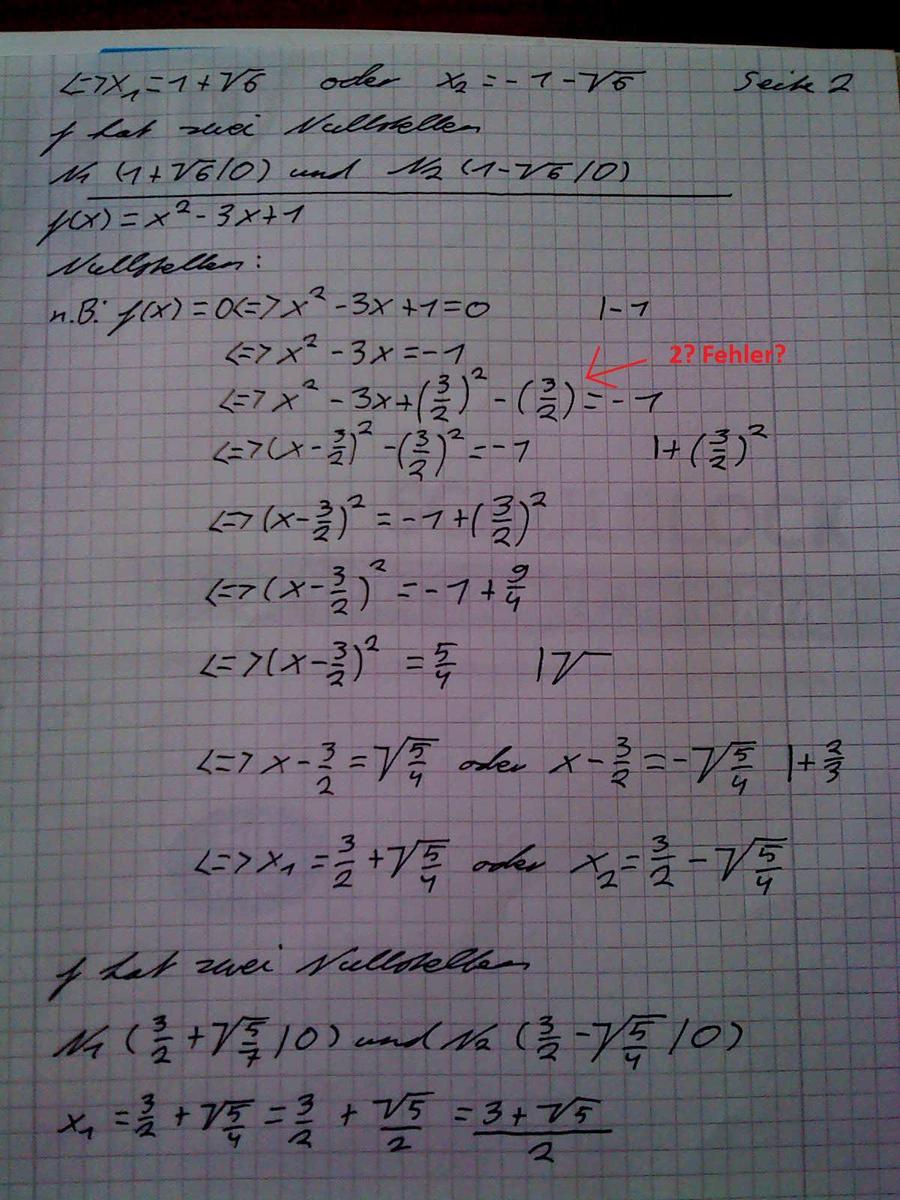 <=> x₁ = 1 + √6 oder x₂ = - 1 - √6 Seite 2
f hat zwei Nullstellen
N₁ (1 + √6 / 0) und N₂ (1 - √6 / 0)
f(x) = x² - 3x + 1
Nullstellen:
n.B: f(x) = 0 <=> x² - 3x + 1 = 0 | - 1
<=> x² - 3x = - 1
2? Fehler?
<=> x² - 3x + (3/2)² - (3/2) = - 1
<=> (x - 3/2)² - (3/2)² = - 1 | + (3/2)²
<=> (x - 3/2)² = - 1 + (3/2)²
<=> (x - 3/2)² = - 1 + 9/4
<=> (x - 3/2)² = 5/4 | √
<=> x - 3/2 = √5/4 oder x - 3/2 = - √5/4 | + 2/3
<=> x₁ = 3/2 + √5/4 oder x₂ = 3/2 - √5/4
f hat zwei Nullstellen
N₁ (3/2 + √5/7 / 0) und N₂ (3/2 - √5/4 / 0)
x₁ = 3/2 + √5/4 = 3/2 + √5/2 = 3 + √5/2